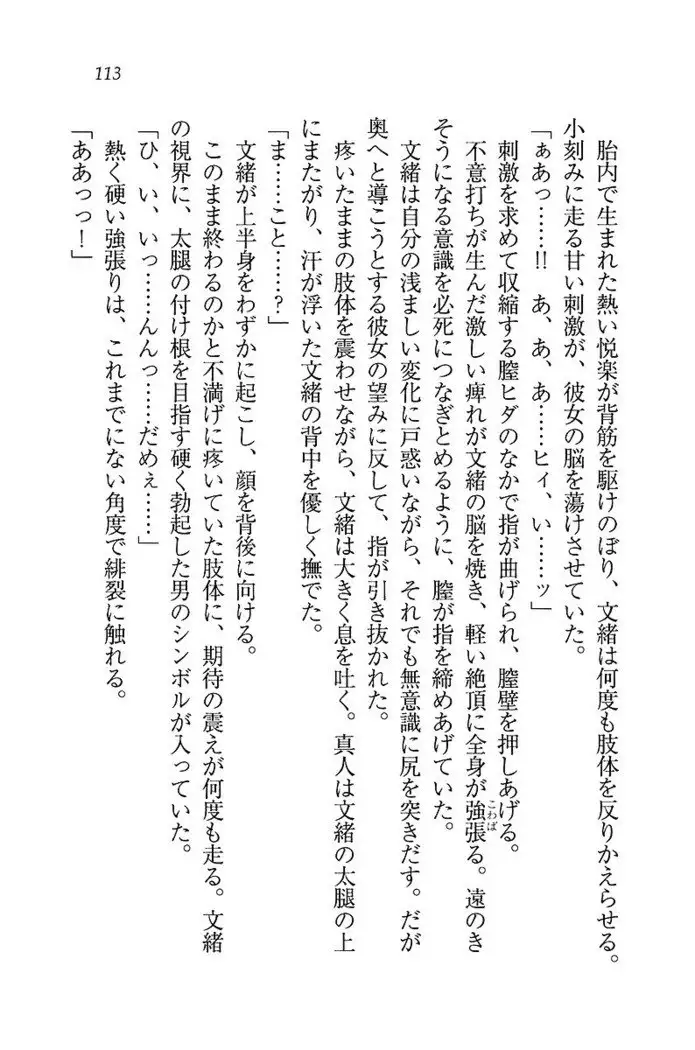 113
胎内で生まれた熱い悦楽が背筋を駆けのぼり、文緒は何度も肢体を反りかえらせる。
小刻みに走る甘い刺激が、彼女の脳を蕩けさせていた。
「ぁあっ……!! あ、あ、あ……ヒィ、い……ッ」
刺激を求めて収縮する膣ヒダのなかで指が曲げられ、膣壁を押しあげる。
不意打ちが生んだ激しい痺れが文緒の脳を焼き、軽い絶頂に全身が強張る。遠のき
こわば
そうになる意識を必死につなぎとめるように、膣が指を締めあげていた。
文緒は自分の浅ましい変化に戸惑いながら、それでも無意識に尻を突きだす。だが
奥へと導こうとする彼女の望みに反して、指が引き抜かれた。
疼いたままの肢体を震わせながら、文緒は大きく息を吐く。真人は文緒の太腿の上
にまたがり、汗が浮いた文緒の背中を優しく撫でた。
「ま……こと……?」
文緒が上半身をわずかに起こし、顔を背後に向ける。
このまま終わるのかと不満げに疼いていた肢体に、期待の震えが何度も走る。文緒
の視界に、太腿の付け根を目指す硬く勃起した男のシンボルが入っていた。
「ひ、い、いっ……んんっ……だめぇ……」
熱く硬い強張りは、これまでにない角度で緋裂に触れる。
「ああっっ!」